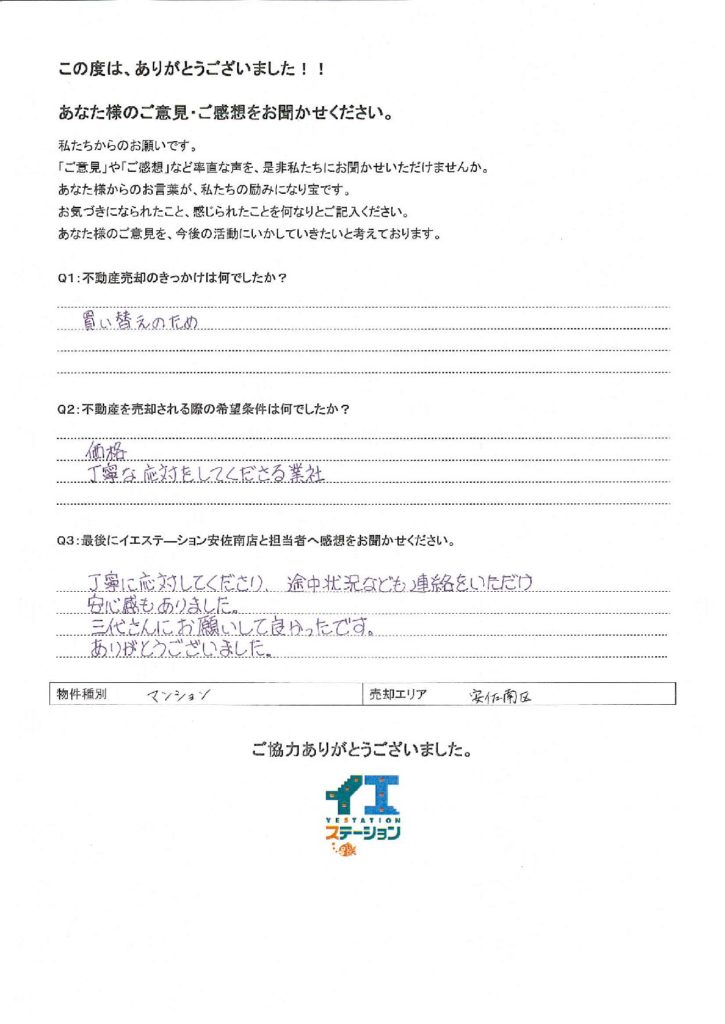 この度は、ありがとうございました！！
あなた様のご意見・ご感想をお聞かせください。
私たちからのお願いです。
「ご意見」や「ご感想」など率直な声を、是非私たちにお聞かせいただけませんか。
あなた様からのお言葉が、私たちの励みになり宝です。
お気づきになられたこと、感じられたことを何なりとご記入ください。
あなた様のご意見を、今後の活動にいかしていきたいと考えております。
Q1：不動産売却のきっかけは何でしたか？
買い替えのため
Q2：不動産を売却される際の希望条件は何でしたか？
価格
丁寧な応対をしてくださる業社
Q3：最後にイエステーション安佐南店と担当者へ感想をお聞かせください。
丁寧に応対してくださり、途中状況なども連絡をいただけ
安心感もありました。
三代さんにお願いして良かったです。
ありがとうございました。
物件種別 マンション 売却エリア 安佐南区
ご協力ありがとうございました。
イエ
YESTATION
ステーション